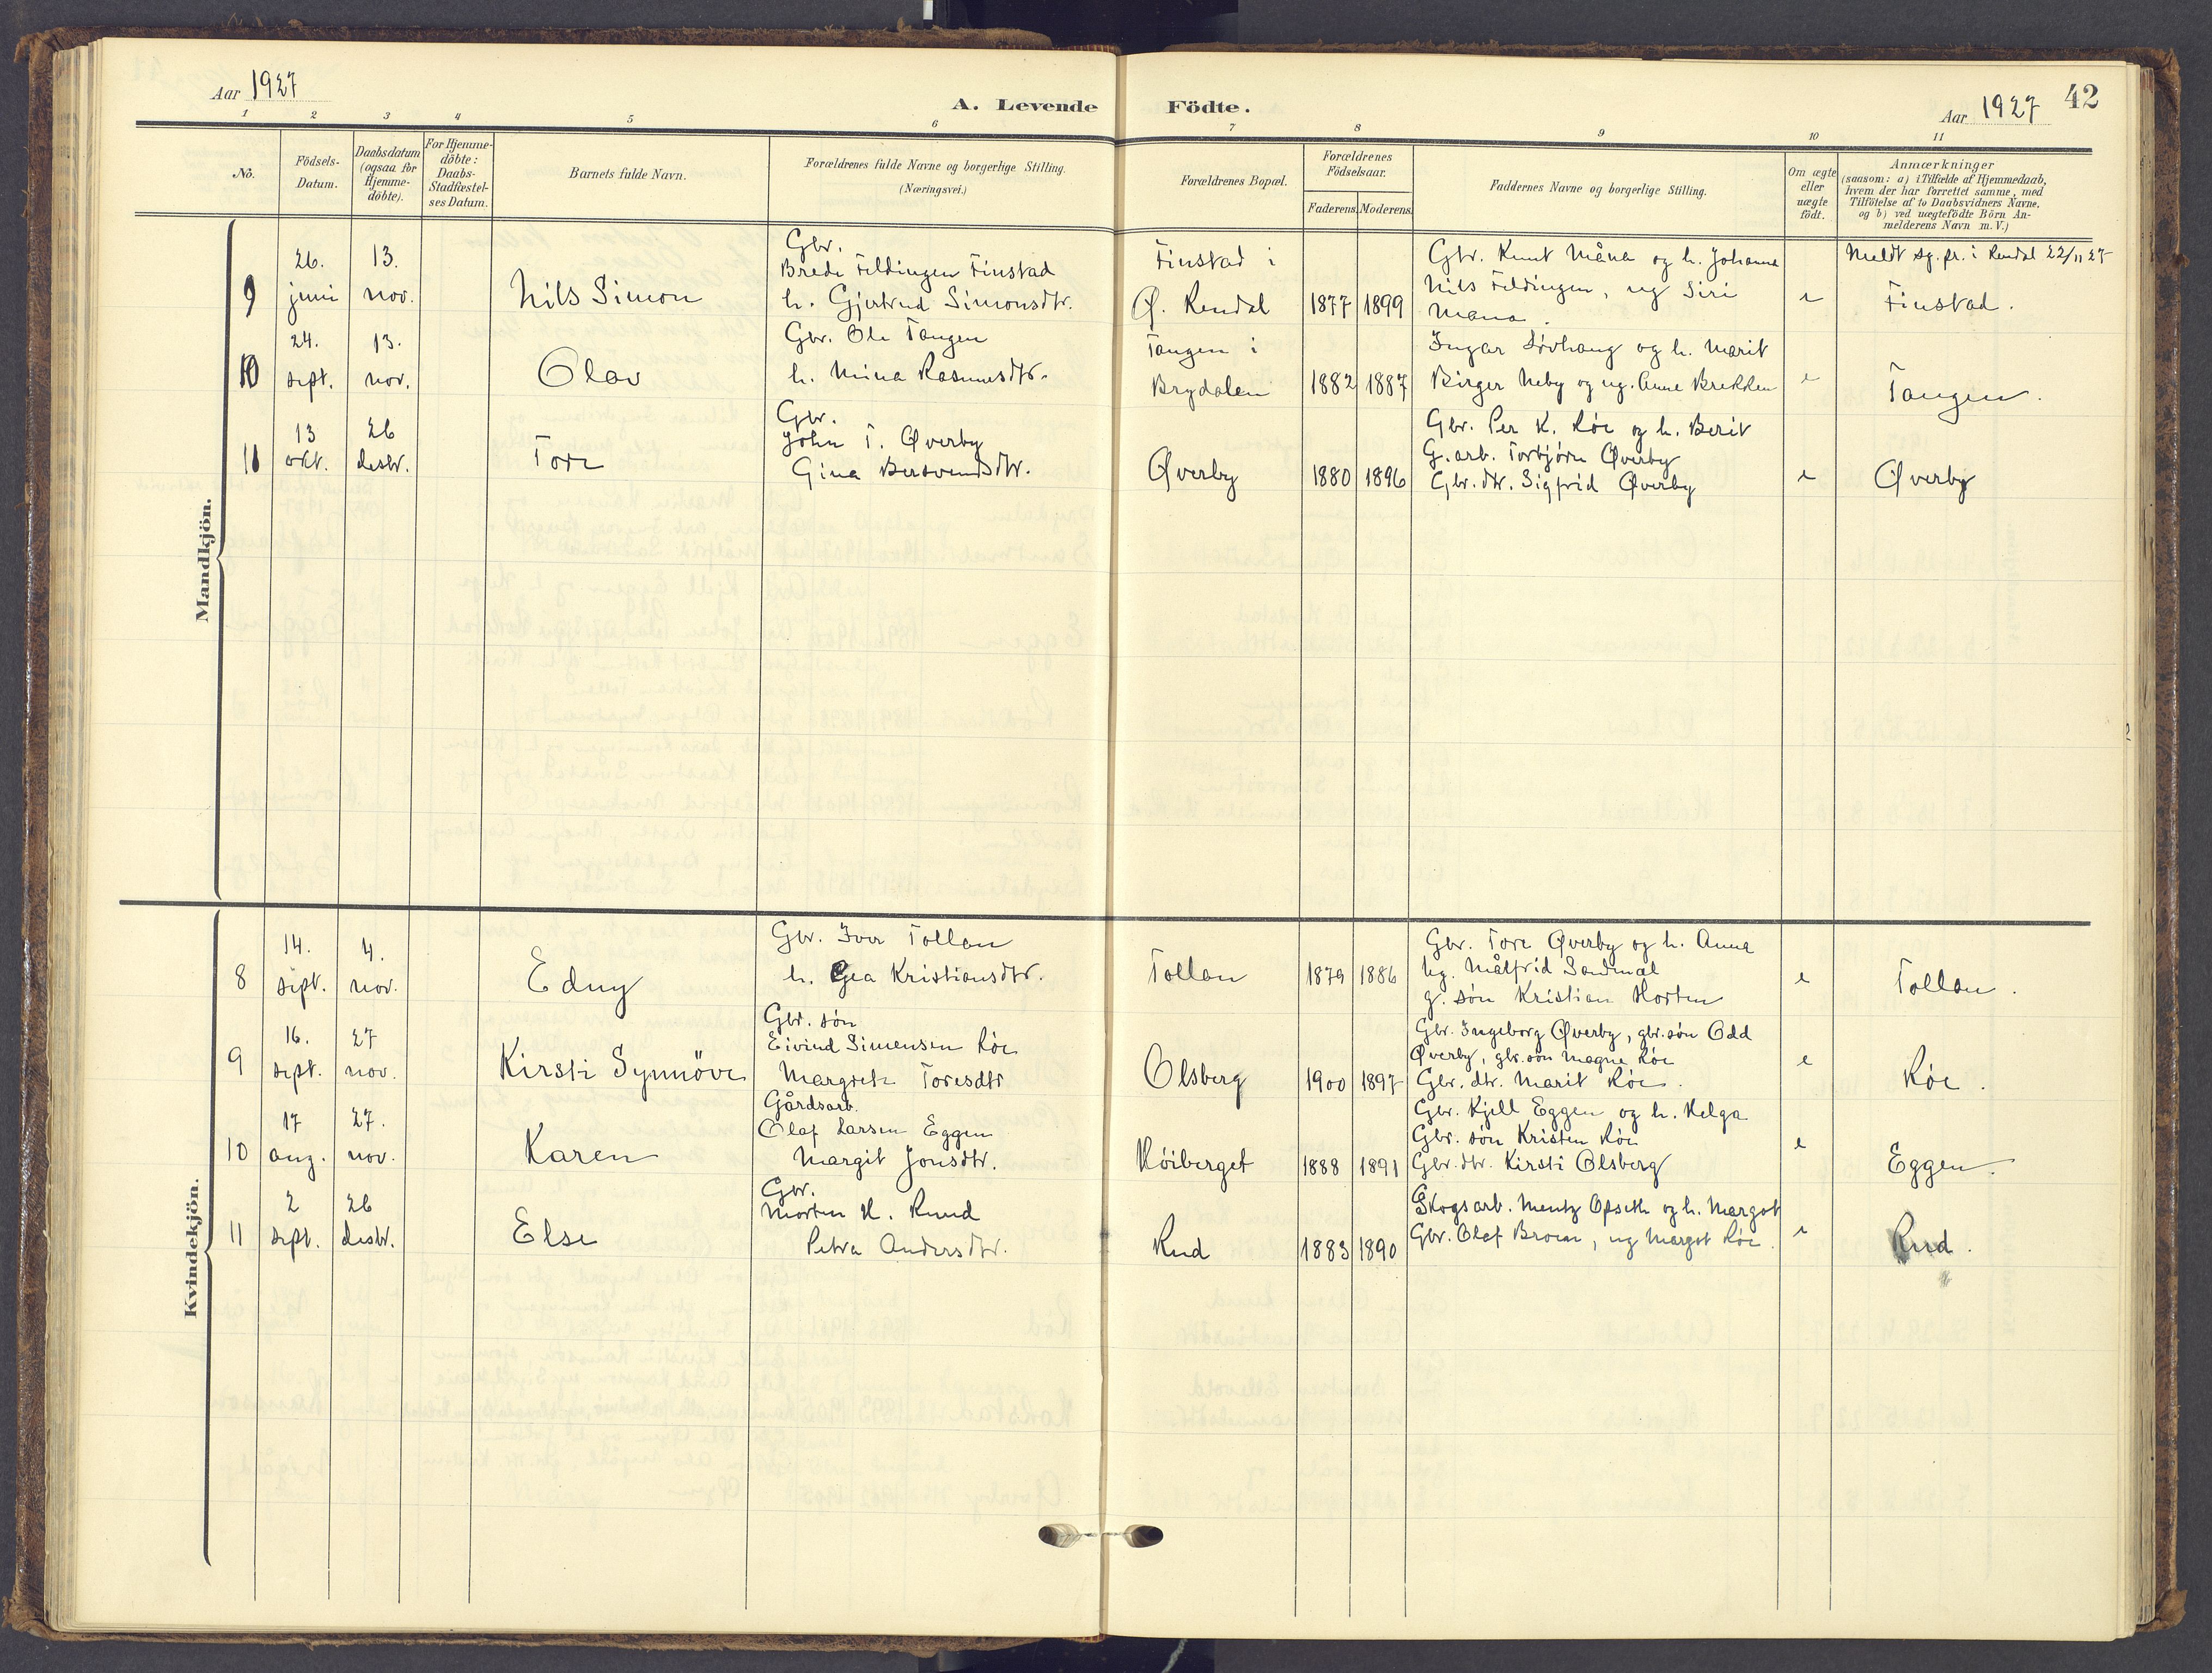 Aar 1927
A. Levende Födte.
Aar 1927
42
1 2 3 4 5 6 7 8 9 10 11
No.
Födsels-Datum.
Daabsdatum (ogsaa for Hjemme-döbte).
For Hjemme-döbte: Daabs-Stadfæstel-ses Datum.
Barnets fulde Navn.
Forældrenes fulde Navne og borgerlige Stilling. (Næringsvei.)
Forældrenes Bopæl.
Forældrenes Födselsaar.
Faderens. Moderens.
Faddernes Navne og borgerlige Stilling.
Om ægte eller uægte födt.
Anmærkninger
(saasom: a) i Tilfælde af Hjemmedaab,
hvem der har forrettet samme, med
Tilföielse af to Daabsvidners Navne,
og b) ved uægtefödte Börn An-
melderens Navn m. V.)
Mandkjön.
9
26. juni
13. nov.
Nils Simon
Gbr.
Brede Fildingen Finstad
h. Gjertrud Simonsdtr.
Finstad i
Ø. Rendal
1877 1899
Gbr. Knut Måna og h. Johanna
Nils Fildingen, ug Siri
Mana.
e
Meldt sg. pr. i Rendal 22/11 27
Finstad.
10
24. sept.
13. nov.
Olav
Gbr. Ole Tangen
h. Mina Rasmusdtr.
Tangen i
Brydalen
1882 1887
Ingar Løvhaug og h. Marit
Birger Neby og ug. Anne Brekken
e
Tangen.
11
13 okt.
26 desbr.
Tore
Gbr.
John T. Øverby
Gina Bersvendsdtr.
Øverby
1880 1896
Gbr. Per K. Røe og h. Berit
G.arb. Torbjørn Øverby
Gbr. dtr. Sigfrid Øverby
e
Øverby
Kvindekjön.
8
14. sept.
4. nov.
Edny
Gbr. Iver Tollan
h. Gea Kristiansdtr.
Tollan
1879 1886
Gbr. Tore Øverby og h. Anna
ug. Målfrid Sandmæl
g. søn Kristian Horten
e
Tollan.
9
16. sept.
27 nov.
Kirsti Synnöve
Gbr. søn
Eivind Simensen Røe
Margrete Toresdtr
Olsberg
1900 1897
Gbr. Ingeborg Øverby, gbr. søn Odd
Øverby, gbr. søn Magne Røe
Gbr. dtr. Marit Røe.
e
Røe.
10
17 aug.
27. nov.
Karen
Gårdsarb.
Olaf Larsen Eggen
Margit Jonsdtr.
Røiberget
1888 1891
Gbr. Kjell Eggen og h. Helga
Gbr. søn Kristen Røe
Gbr. dtr. Kirsti Olsberg
e
Eggen.
11
2 sept.
26 desbr.
Else
Gbr.
Morten H. Ruud
Petra Andersdtr.
Rud
1883 1890
Skogsarb. Mentz Opseth og h. Margot
Gbr. Olaf Broen, ug Margot Røe.
e
Rud.